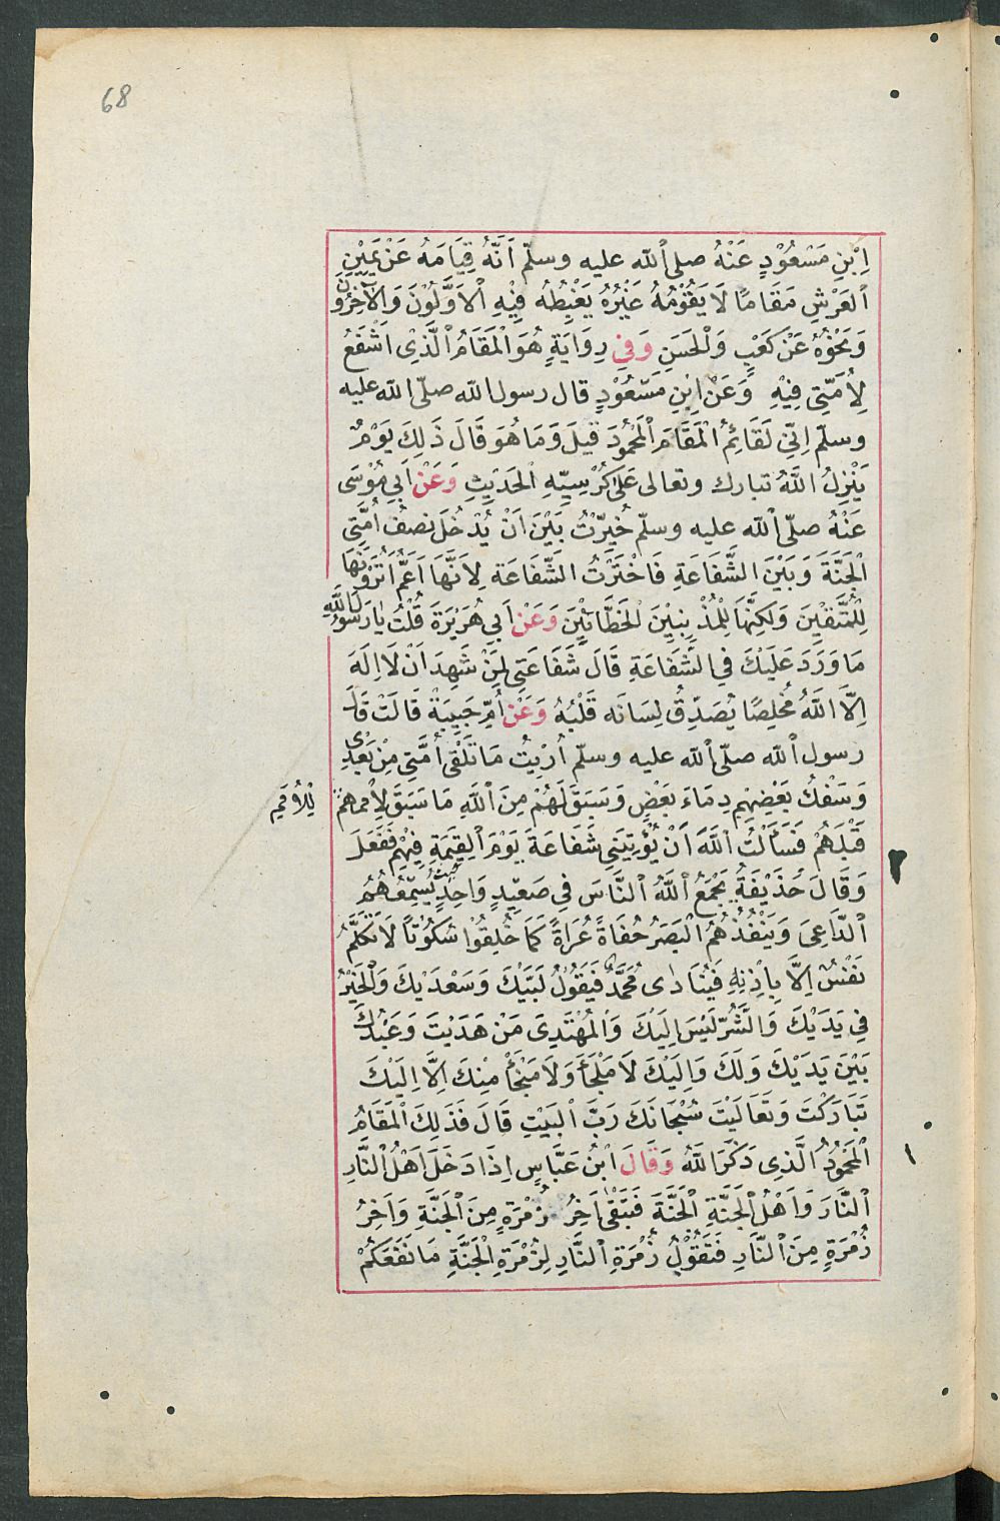 68
اِبْنِ مَسْعُوْدٍ عَنْهُ صلى الله عليه وسلّم اَنَّهُ قِيَامَهُ عَنْ يَمِيْنِ
الْعَرْشِ مَقَامًا لَا يَقُوْمُهُ غَيْرُهُ يَغْبِطُهُ فِيْهِ الْاَوَّلُوْنَ وَالْآخِرُوْنَ
وَنَحْوُهُ عَنْ كَعْبٍ وَالْحَسَنِ وَفِي رِوَايَةٍ هُوَ الْمَقَامُ الَّذِى اَشْفَعُ
لِاُمَّتِى فِيْهِ وَعَنْ اِبْنِ مَسْعُوْدٍ قال رسول الله صلّى الله عليه
وسلّم اِنِّي لَقَائِمُ الْمَقَامَ الْمَحْمُودَ قِيلَ وَمَا هُوَ قَالَ ذَلِكَ يَوْمٌ
يَنْزِلُ اللَّهُ تبارك وتعالى عَلَى كُرْسِيِّهِ الْحَدِيْثِ وَعَنْ اَبِي مُوْسَى
عَنْهُ صلّى الله عليه وسلّم خُيِّرْتُ بَيْنَ اَنْ يُدْخُلَ نِصْفُ اُمَّتِى
الْجَنَّةَ وَبَيْنَ الشَّفَاعَةِ فَاخْتَرْتُ الشَّفَاعَةَ لِاَنَّهَا اَعَمُّ اَتُرَوْنَهَا
لِلْمُتَّقِيْنَ وَلَكِنَّهَا لِلْمُذْنِبِيْنَ الْخَطَّائِيْنَ وَعَنْ اَبِي هُرَيْرَةَ قُلْتُ يَارَسُوْلَ اللّٰهِ
مَا وَرَدَ عَلَيْكَ فِي الشَّفَاعَةِ قَالَ شَفَاعَتِى لِمَنْ شَهِدَ اَنْ لَا اِلَهَ
اِلَّا اللَّهُ مُخْلِصًا يُصَدِّقُ لِسَانَه قَلْبُهُ وَعَنْ اُمِّ حَبِيبَةَ قَالَتْ قَالَ
رسول الله صلّى الله عليه وسلّم اُرِيْتُ مَا تَلْقَى اُمَّتِى مِنْ بَعْدِى
وَسَفْكُ بَعْضِهِمْ دِمَاءَ بَعْضٍ وَسَبَقَ لَهُمْ مِنَ اللَّهِ مَا سَبَقَ لِاُممهمْ
لِلْاُمَمِ
قَبْلَهُمْ فَسَأَلْتُ اللَّهَ اَنْ يُؤْتِيَنِي شَفَاعَةَ يَوْمَ الْقِيٰمَةِ فِيْهِمْ فَفَعَلَ
وَقَالَ حُذَيْفَةُ يَجْمَعُ اللَّهُ النَّاسَ فِي صَعِيْدٍ وَاحِدٍ يُسَمِّعُهُمُ
الدَّاعِىَ وَيَنْفُذُهُمُ الْبَصَرُ حُفَاةً عُرَاةً كَمَا خُلِقُوْا سُكُوْتًا لَا تَكَلَّمُ
نَفْسٌ اِلَّا بِاِذْنِهِ فَيُنَادَى مُحَمَّدٌ فَيَقُوْلُ لَبَّيْكَ وَسَعْدَيْكَ وَالْخَيْرُ
فِي يَدَيْكَ وَالشَّرُّ لَيْسَ اِلَيْكَ وَالْمُهْتَدِى مَنْ هَدَيْتَ وَعَبْدُكَ
بَيْنَ يَدَيْكَ وَلَكَ وَاِلَيْكَ لَا مَلْجَأَ وَلَا مَنْجَأَ مِنْكَ اِلَّا اِلَيْكَ
تَبَارَكْتَ وَتَعَالَيْتَ سُبْحَانَكَ رَبَّ الْبَيْتِ قَالَ فَذَلِكَ الْمَقَامُ
الْمَحْمُوْدُ الَّذِى ذَكَرَ اللَّهُ وَقَالَ ابْنُ عَبَّاسٍ اِذَا دَخَلَ اَهْلُ النَّارِ
النَّارَ وَاَهْلُ الْجَنَّةِ الْجَنَّةَ فَيَبْقَى اَخِرُ زُمْرَةٍ مِنَ الْجَنَّةِ وَاَخِرُ
زُمْرَةٍ مِنَ النَّارِ فَتَقُوْلُ زُمْرَةِ النَّارِ لِزُمْرَةِ الْجَنَّةِ مَا نَفَعَكُمْ